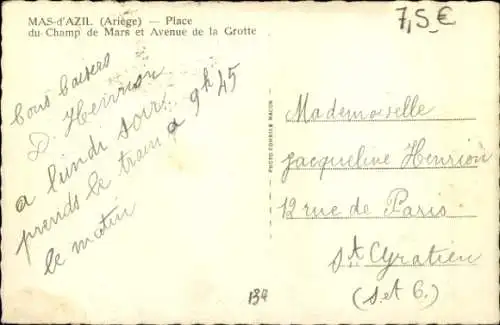 MAS-d'AZIL (Ariège) — Place
du Champ de Mars et Avenue de la Grotte
7,5 €
bons baisers
D. Henrion
a lundi soir
prends le train a 9h45
le matin
PHOTO-COMBIER MACON
Mademoiselle
Jacqueline Henrion
12 rue de Paris
St Cyratien
(S. et O.)
134